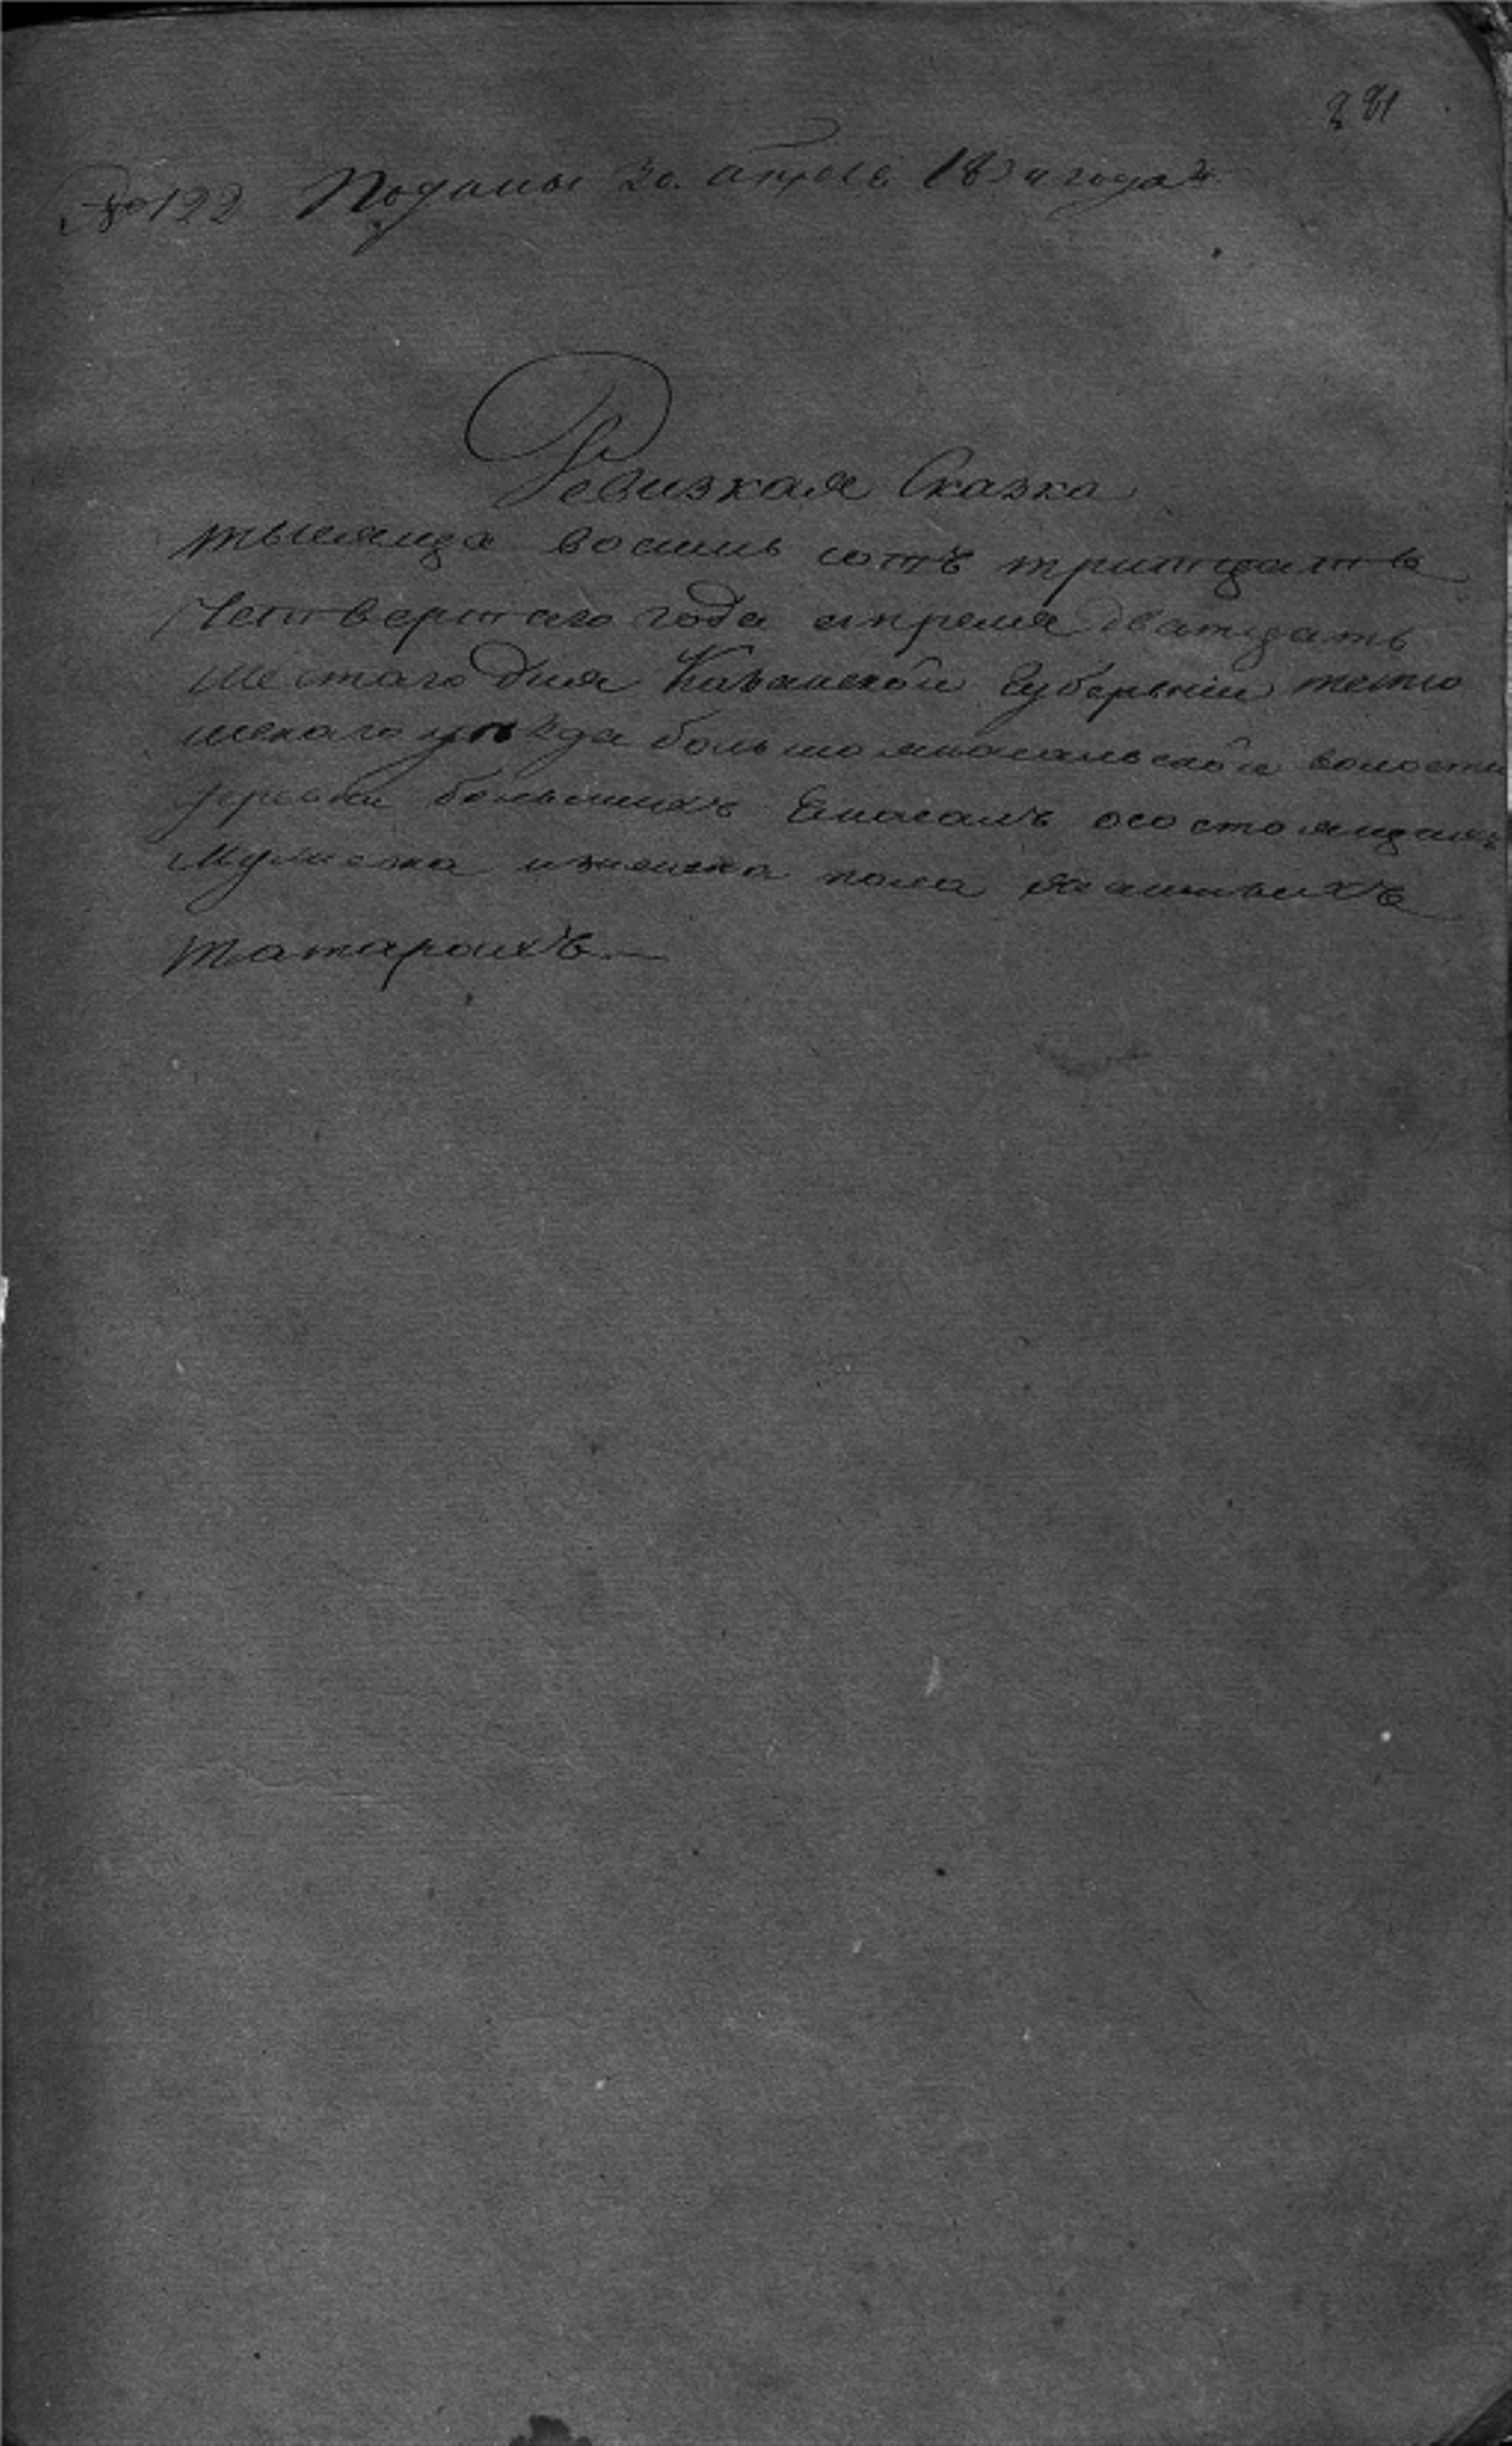 № 122 Поданы 30. апреля 1834 года
Ревизкая Сказка
тысяцза восимь сотъ тритцать
Четвертаго года апреля дватцать
шестаго дня Казанской Губернии тетю
шскаго уезда большо волости
деревни большихъ осостоящихъ
Мужиска иженска пола ясашныхъ
татарахъ.